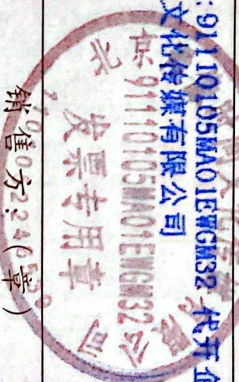 :91110105MA01EWGM32 代开企
文化传媒有限公司
91110105MA01EWGM32
发票专用章
销售方:(章)